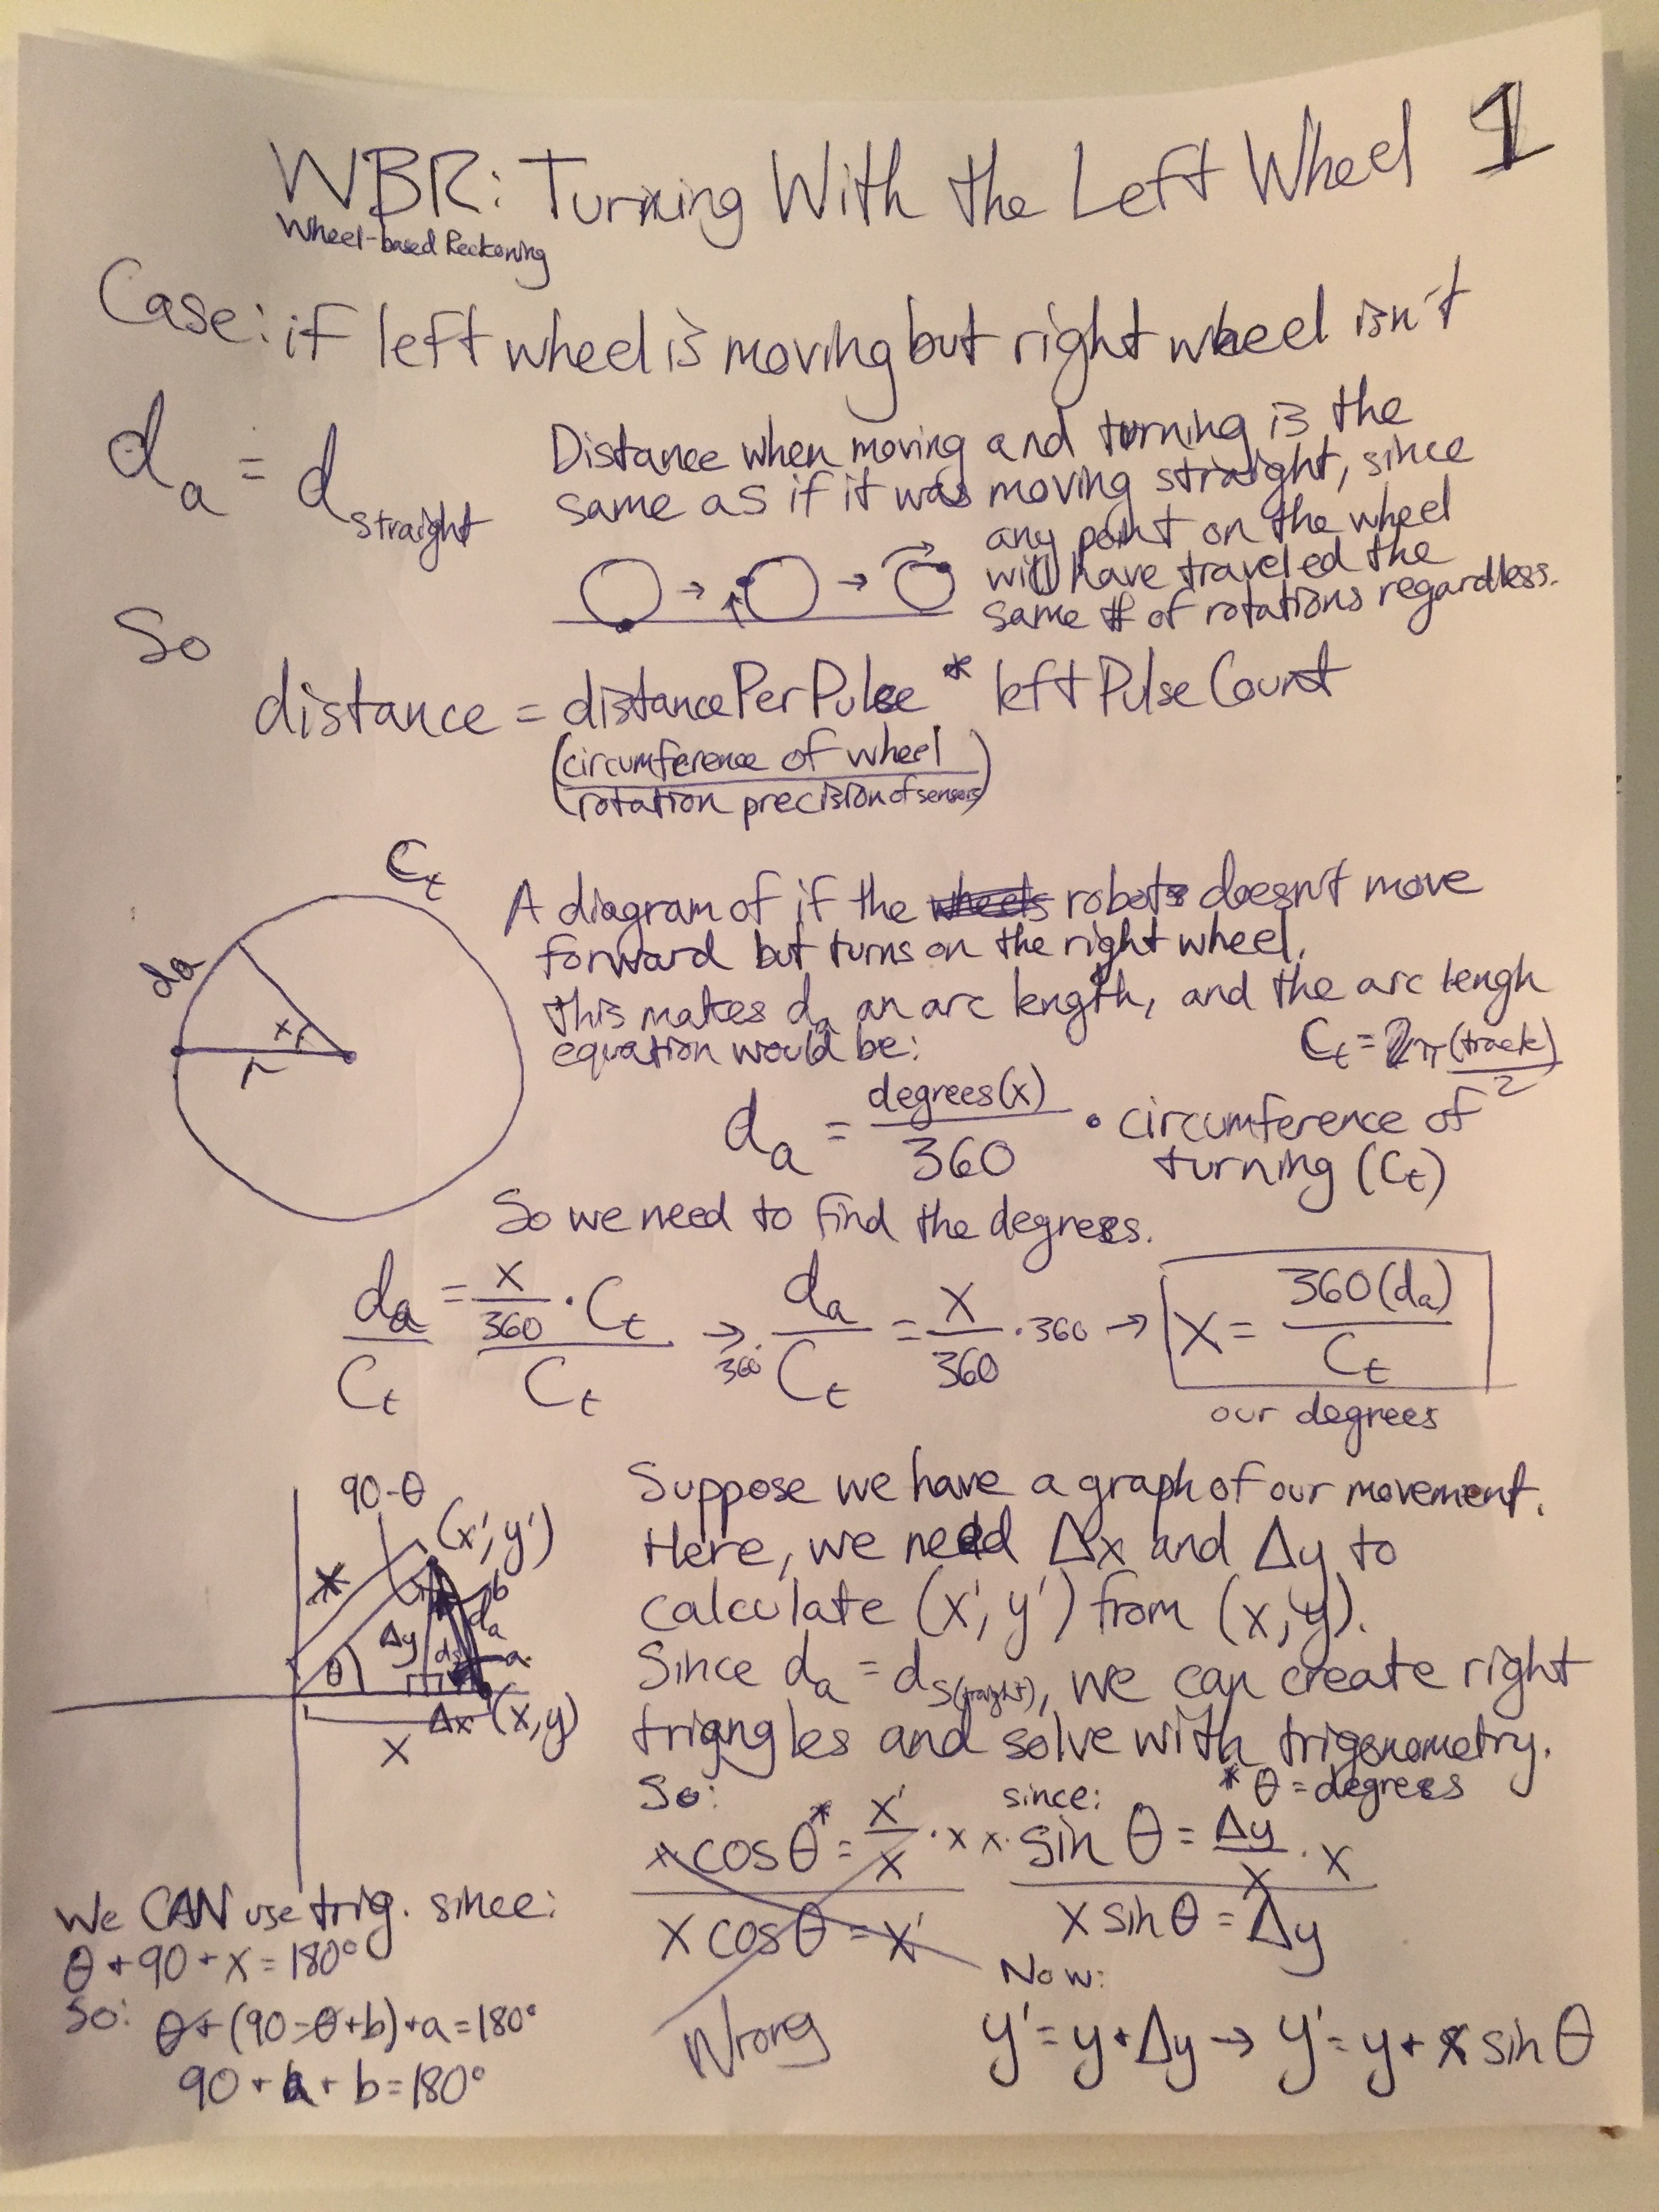 WBR: Turning With the Left Wheel 1
Wheel-based Reckoning
Case: if left wheel is moving but right wheel isn't
da = dstraight
Distance when moving and turning is the
same as if it was moving straight, since
any point on the wheel
will have traveled the
same # of rotations regardless.
So
distance = distancePerPulse * leftPulseCount
(circumference of wheel
rotation precision of sensors)
Ct
da
r
x
A diagram of if the robot doesnt move
forward but turns on the right wheel.
this makes da an arc length, and the arc length
equation would be:
Ct = 2π(track)
2
da = degrees(x)/360 • circumference of
turning (Ct)
So we need to find the degrees.
da/Ct = x/360 · Ct / Ct → 360 · da/Ct = x/360 · 360 → x = 360(da)/Ct
our degrees
90-θ
(x', y')
*
θ
Δy
da
b
a
x
Δx
(x, y)
Suppose we have a graph of our movement.
Here, we need Δx and Δy to
calculate (x', y') from (x, y).
Since da = dstraight, we can create right
triangles and solve with trigonometry.
So:
since:
*θ = degrees
x cos θ* = x'/x · x
x cos θ = x'
Wrong
x · sin θ = Δy/x · x
x sin θ = Δy
Now:
y' = y + Δy → y' = y + x sin θ
We CAN use trig. since:
θ + 90 + x = 180°
So: θ + (90 - θ + b) + a = 180°
90 + a + b = 180°